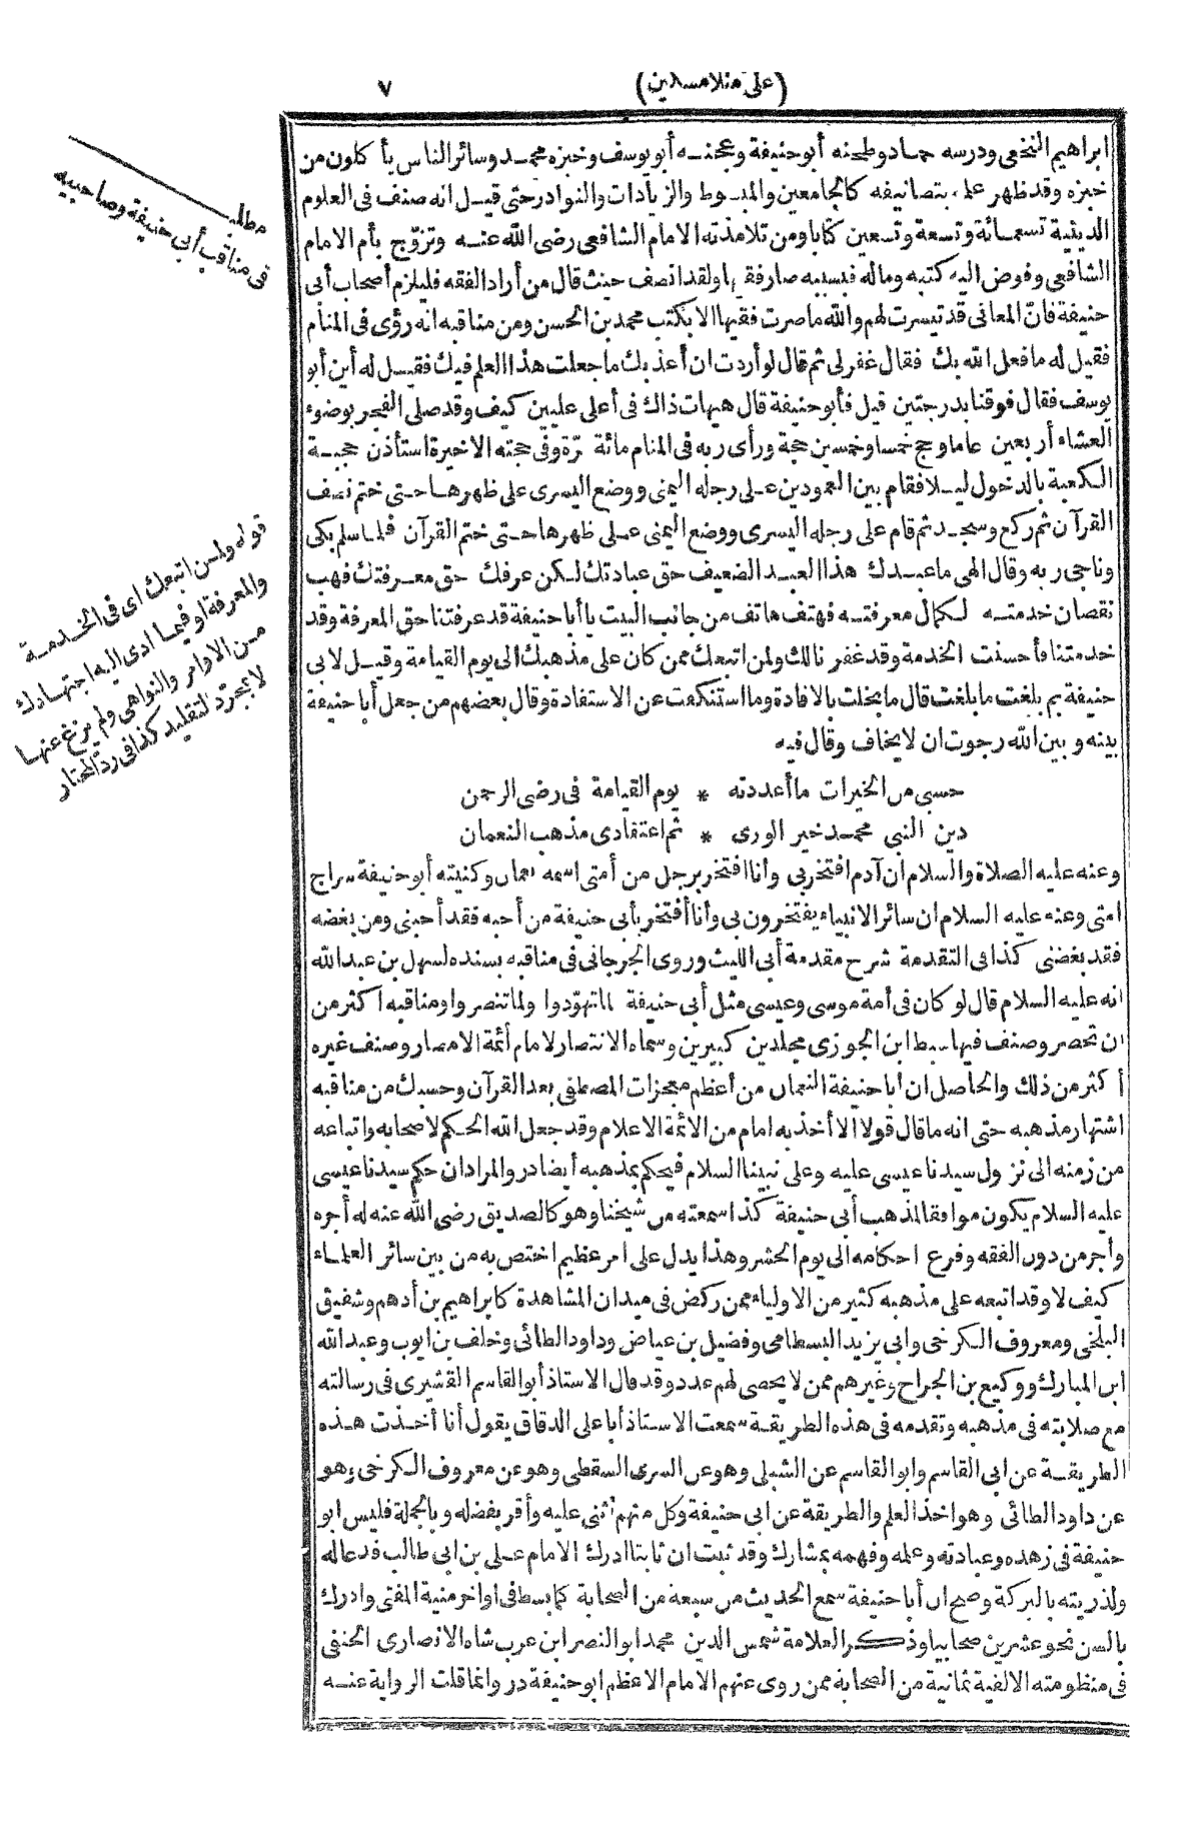 (على منلا مسكين)
٧
ابراهيم النخعي ودرسه حماد وطحنه أبوحنيفة وعجنه أبويوسف وخبزه محمد وسائر الناس يأكلون من
خبزه وقد ظهر علمه بتصانيفه كالجامعين والمبسوط والزيادات والنوادر حتى قيل انه صنف فى العلوم
الدينية تسعمائة وتسعة وتسعين كتابا ومن تلامذته الامام الشافعى رضى الله عنه وتزوّج بأم الامام
الشافعى وفوض اليه كتبه وماله فبسببه صار فقيها ولقد انصف حيث قال من أراد الفقه فليلزم أصحاب أبى
حنيفة فانّ المعانى قد تيسرت لهم والله ما صرت فقيها الا بكتب محمد بن الحسن ومن مناقبه انه رؤى فى المنام
فقيل له ما فعل الله بك فقال غفر لى ثم قال لو أردت ان أعذبك ما جعلت هذا العلم فيك فقيل له أين أبو
يوسف فقال فوقنا بدرجتين قيل فأبوحنيفة قال هيهات ذاك فى أعلى عليين كيف وقد صلى الفجر بوضوء
العشاء أربعين عاما وحج خمسا وخمسين حجة ورأى ربه فى المنام مائة مرّة وفى حجته الاخيرة استأذن حجبة
الكعبة بالدخول ليلا فقام بين العمودين على رجله اليمنى ووضع اليسرى على ظهرها حتى ختم نصف
القرآن ثم ركع وسجد ثم قام على رجله اليسرى ووضع اليمنى على ظهرها حتى ختم القرآن فلما سلم بكى
وناجى ربه وقال الهى ما عبدك هذا العبد الضعيف حق عبادتك لكن عرفك حق معرفتك فهب
نقصان خدمته لكمال معرفته فهتف هاتف من جانب البيت يا أبا حنيفة قد عرفتنا حق المعرفة وقد
خدمتنا فأحسنت الخدمة وقد غفرنا لك ولمن اتبعك ممن كان على مذهبك الى يوم القيامة وقيل لابى
حنيفة بم بلغت ما بلغت قال ما بخلت بالافادة وما استنكفت عن الاستفادة وقال بعضهم من جعل أبا حنيفة
بينه وبين الله رجوت ان لا يخاف وقال فيه
حسبى من الخيرات ما أعددته * يوم القيامة فى رضى الرحمن
دين النبى محمد خير الورى * ثم اعتقادى مذهب النعمان
وعنه عليه الصلاة والسلام ان آدم افتخر بى وانا افتخر برجل من أمتى اسمه نعمان وكنيته أبوحنيفة سراج
امتى وعنه عليه السلام ان سائر الانبياء يفتخرون بى وأنا أفتخر بأبى حنيفة من أحبه فقد أحبنى ومن بغضه
فقد بغضنى كذا فى التقدمة شرح مقدمة أبى الليث وروى الجرجانى فى مناقبه بسنده لسهل بن عبد الله
انه عليه السلام قال لو كان فى أمة موسى وعيسى مثل أبى حنيفة لما تهوّدوا ولما تنصروا ومناقبه اكثر من
ان تحصر وصنف فيها سبط ابن الجوزى مجلدين كبيرين وسماه الانتصار لامام أئمة الامصار وصنف غيره
أكثر من ذلك والحاصل ان أبا حنيفة النعمان من أعظم معجزات المصطفى بعد القرآن وحسبك من مناقبه
اشتهار مذهبه حتى انه ما قال قولا الا أخذ به امام من الائمة الاعلام وقد جعل الله الحكم لاصحابه واتباعه
من زمنه الى نزول سيدنا عيسى عليه وعلى نبينا السلام فيحكم بمذهبه أيضا در والمراد ان حكم سيدنا عيسى
عليه السلام يكون موافقا لمذهب أبى حنيفة كذا سمعته من شيخنا وهو كالصديق رضى الله عنه له أجره
وأجر من دوّن الفقه وفرع احكامه الى يوم الحشر وهذا يدل على امر عظيم اختص به من بين سائر العلماء
كيف لا وقد اتبعه على مذهبه كثير من الاولياء ممن ركض فى ميدان المشاهدة كابراهيم بن أدهم وشقيق
البلخى ومعروف الكرخى وابى يزيد البسطامى وفضيل بن عياض وداود الطائى وخلف بن ايوب وعبد الله
ابن المبارك ووكيع بن الجراح وغيرهم ممن لا يحصى لهم عدد وقد قال الاستاذ أبو القاسم القشيرى فى رسالته
مع صلابته فى مذهبه وتقدمه فى هذه الطريقة سمعت الاستاذ أبا على الدقاق يقول أنا أخذت هذه
الطريقة عن ابى القاسم وابو القاسم عن الشبلى وهو عن السرى السقطى وهو عن معروف الكرخى وهو
عن داود الطائى وهو اخذ العلم والطريقة عن ابى حنيفة وكل منهم أثنى عليه وأقر بفضله وبالجملة فليس ابو
حنيفة فى زهده وعبادته وعلمه وفهمه بمشارك وقد ثبت ان ثابتا ادرك الامام على بن ابى طالب فدعا له
ولذريته بالبركة وصح ان أبا حنيفة سمع الحديث من سبعة من الصحابة كما بسط فى اواخر منية المفتى وادرك
بالسن نحو عشرين صحابيا وذكر العلامة شمس الدين محمد ابو النصر ابن عرب شاه الانصارى الحنفى
فى منظومته الالفية ثمانية من الصحابة ممن روى عنهم الامام الاعظم ابوحنيفة در وانما قلت الرواية عنه
مطلب
فى مناقب أبى حنيفة وصاحبيه
قوله ولمن اتبعك اى فى الخدمة
والمعرفة او فيما ادى اليه اجتهادك
من الاوامر والنواهى ولم يزغ عنها
لا بمجرّد التقليد كذا فى ردّ المحتار